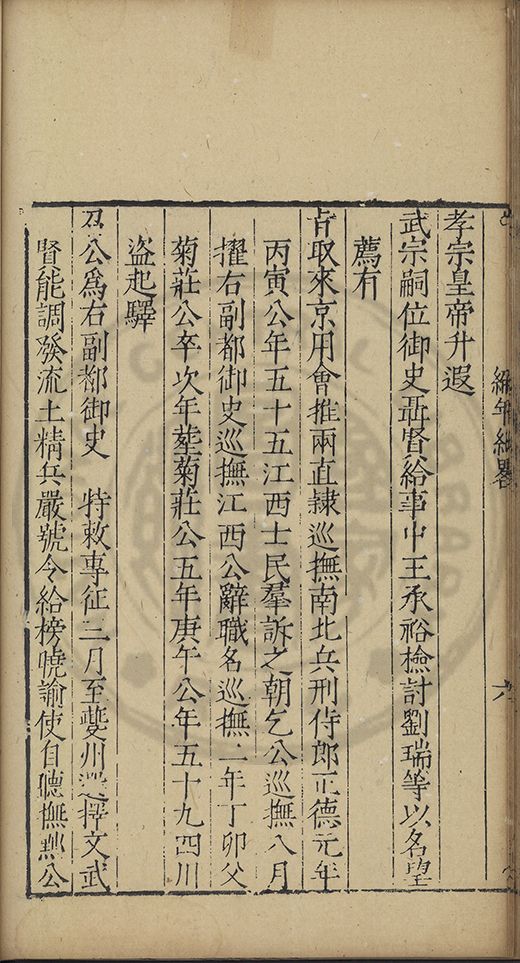 編年紀畧
六
孝宗皇帝升遐
武宗嗣位御史聶賢給事中王承裕檢討劉瑞等以名望
薦有
旨取來京用會推兩直隷巡撫南北兵刑侍郎正德元年
丙寅公年五十五江西士民羣訴之朝乞公巡撫八月
擢右副都御史巡撫江西公辭職名巡撫二年丁卯父
菊莊公卒次年塟菊莊公五年庚午公年五十九四川
盜起驛
召公爲右副都御史 特敕專征二月至夔州選擇文武
賢能調發流土精兵嚴號令給榜曉諭使自聽撫